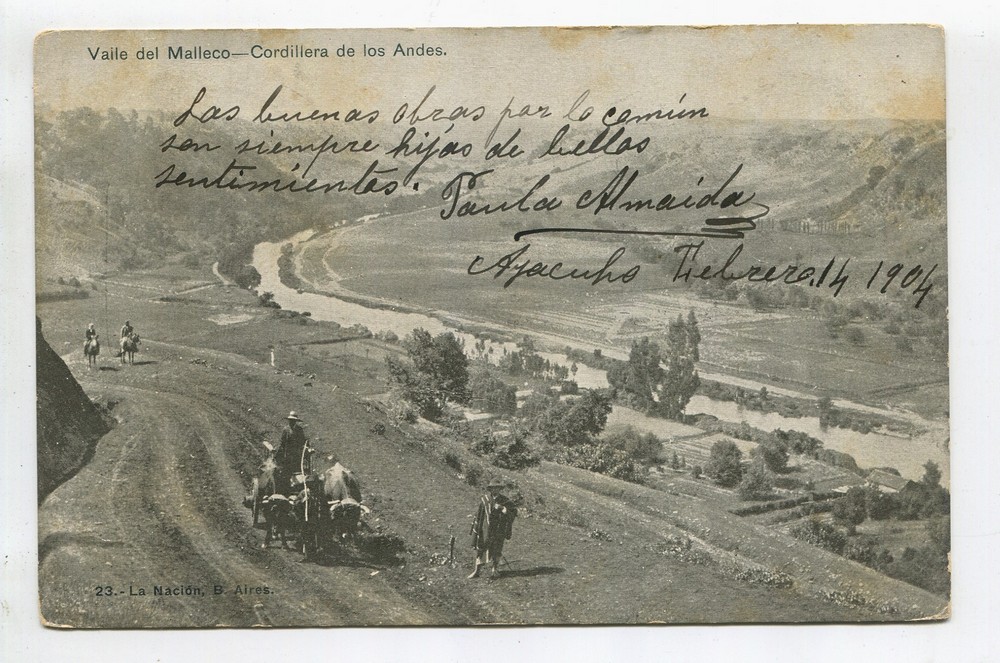 Valle del Malleco—Cordillera de los Andes.
Las buenas obras por lo común
son siempre hijas de bellos
sentimientos.
Paula Almaida
Ayacucho Febrero 14 1904
23.- La Nación, B. Aires.